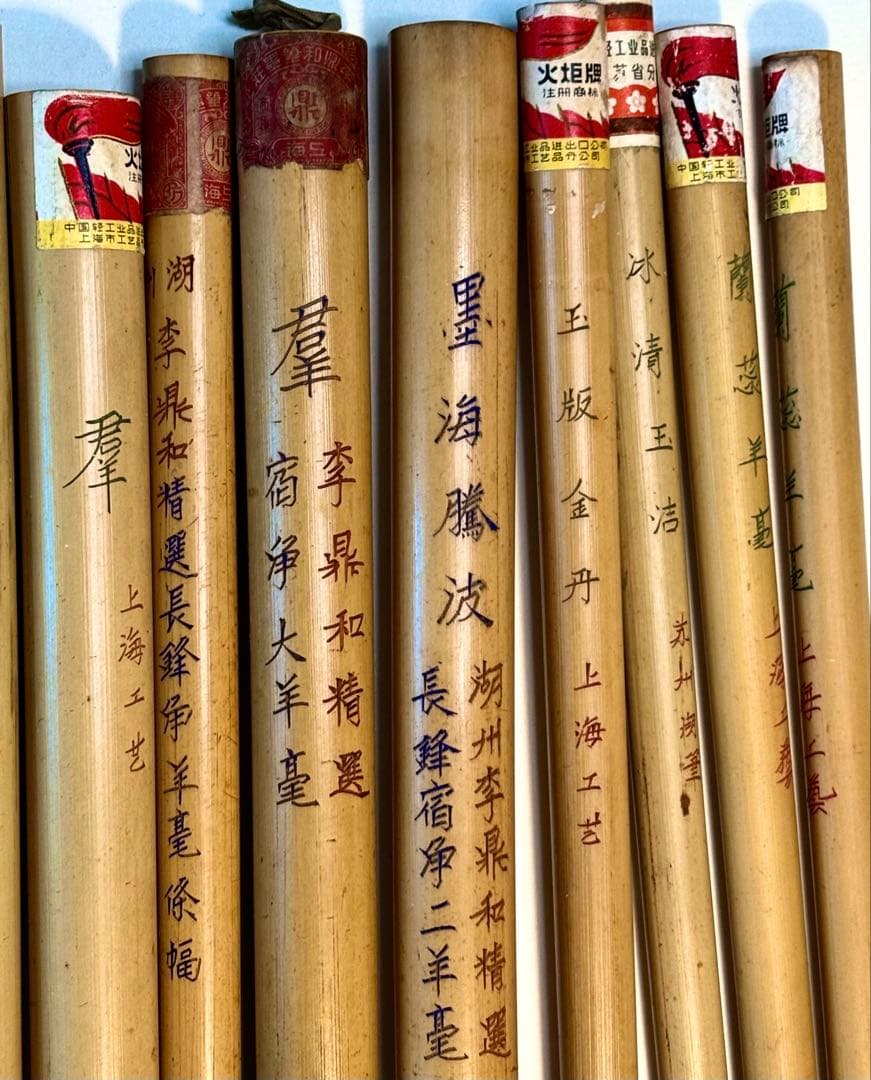 火
注册
中国轻工业品进
上海市工艺品
羣
上海工艺
鼎
海上
湖
李鼎和精選長鋒净羊毫條幅
鼎
海上
羣
李鼎和精選
宿净大羊毫
墨海騰波
湖州李鼎和精選
長鋒宿净二羊毫
火炬牌
注册商标
工业品进出口公司
工艺品分公司
玉版金丹
上海工艺
轻工业品进
苏省分
冰清玉洁
苏州湖筆
中国轻工业
上海市工
蘭蕊羊毫
上海工藝
炬牌
公司
公司
蘭蕊羊毫
上海工藝